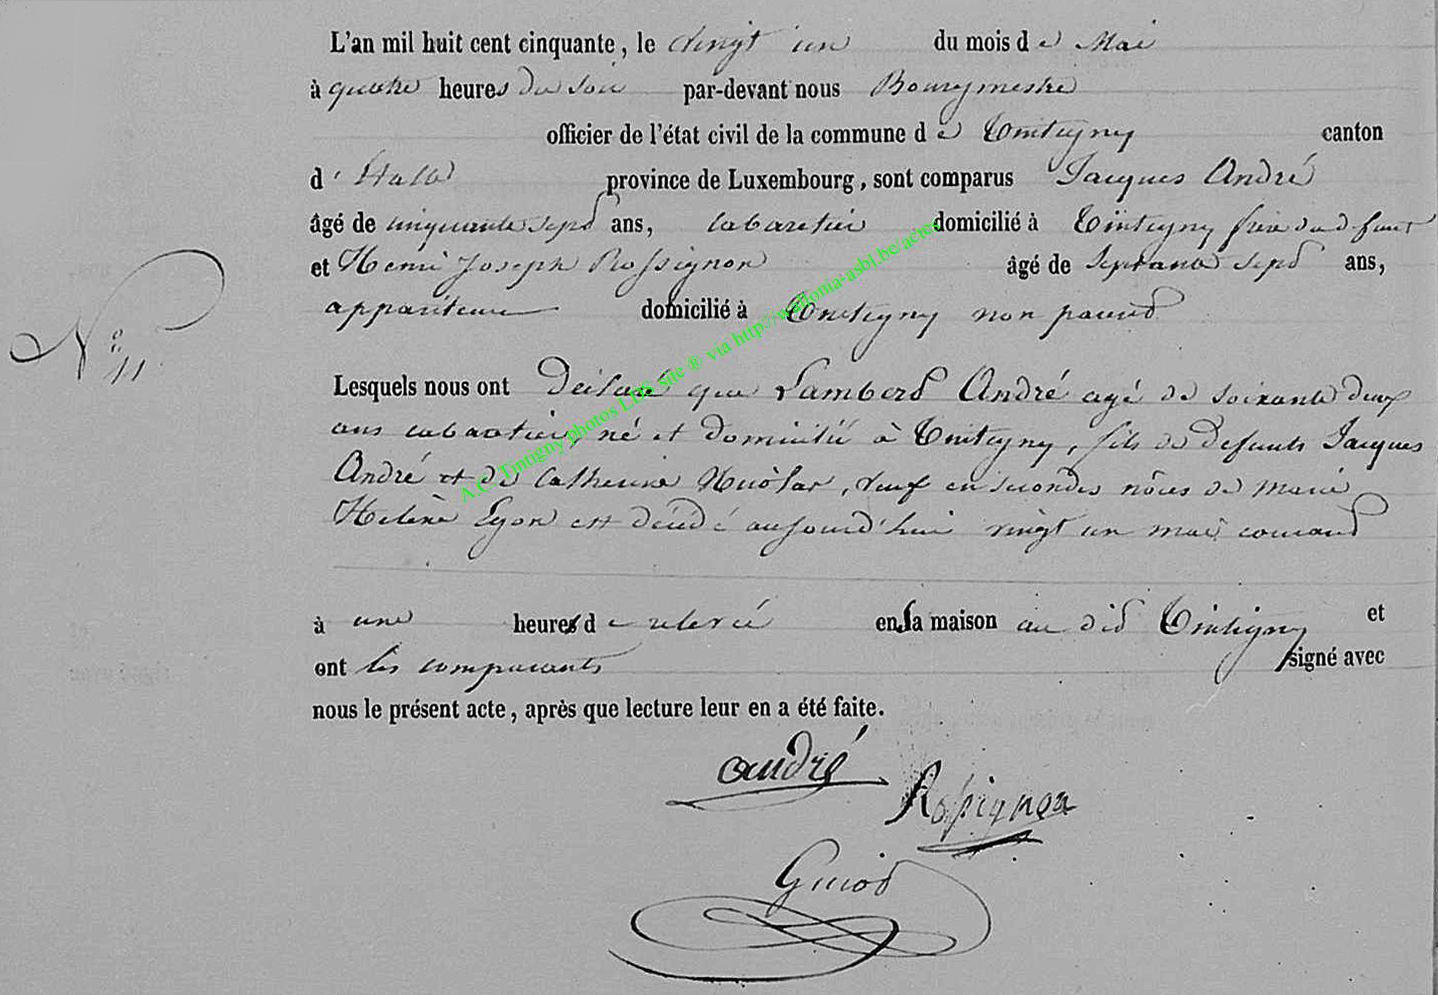 L'an mil huit cent cinquante, le vingt un du mois de Mai
à quatre heures du soir par-devant nous Bourgmestre
officier de l'état civil de la commune de Tintigny canton
d' Etalle province de Luxembourg, sont comparus Jacques André
âgé de cinquante sept ans, cabaretier domicilié à Tintigny frère du défunt
et Henri Joseph Rossignon âgé de septante sept ans,
appariteur domicilié à Tintigny non parent
N° 11
Lesquels nous ont déclaré que Lambert André agé de soixante deux
ans cabaretier, né et domicilié à Tintigny, fils de defunts Jacques
André et de Catherine Nicolas, veuf en secondes nôces de Marie
Helène Eyon est décédé aujourd'hui vingt un mai courant
à une heures de relevée en sa maison au dit Tintigny et
ont les comparants signé avec
nous le présent acte, après que lecture leur en a été faite.
André
Rossignon
Guiot
A.C. Tintigny photos LDS site ® via http://wallonia-asbl.be/actes